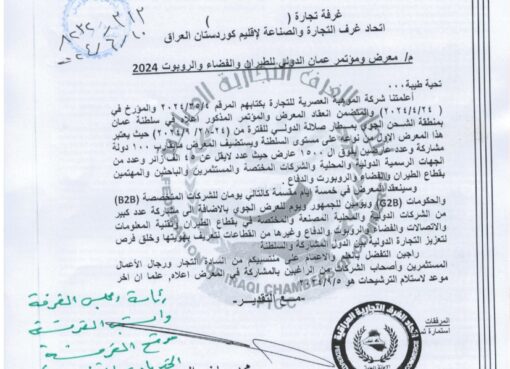 غرفة تجارة (                    )
اتحاد غرف التجارة والصناعة لإقليم كوردستان العراق
م/ معرض ومؤتمر عمان الدولي للطيران والفضاء والروبوت 2024
تحية طيبة...
أعلمتنا شركة الموهبة العصرية للتجارة بكتابهم المرقم والمؤرخ في
(٢٠٢٤/٤/٢٤) والمتضمن انعقاد المعرض والمؤتمر المذكور اعلاه في سلطنة عمان
بمنطقة الشحن الجوي بمطار صلالة الدولي للفترة من حيث يعتبر
هذا المعرض الاول من نوعه على مستوى السلطنة ويستضيف المعرض مايقارب ١٠٠ دولة
مشاركة وعدد عارضين يفوق ال ١٥٠٠ عارض حيث عدد لايقل عن ٤٥ الف زائر وعدد من
الجهات الرسمية الدولية والمحلية والشركات المختصة والمستثمرين والباحثين والمهتمين
بقطاع الطيران والفضاء والروبورت والدفاع.
وسينعقد المعرض في خمسة ايام مقسمة كالتالي يومان للشركات المتخصصة (B2B)
والحكومات (G2B) ويومين للجمهور ويوم للعرض الجوي بالاضافة الى مشاركة عدد كبير
من الشركات الدولية والمحلية المصنعة والمختصة في بقطاع الطيران وتقنية المعلومات
والاتصالات والفضاء والروبوت والدفاع وغيرها من القطاعات لتعرف بهويتها وخلق فرص
لتعزيز التجارة الدولية بين الدول المشاركة والسلطنة
راجين التفضل بالعلم والاعمام على منتسبيكم من السادة التجار ورجال الأعمال
المستثمرين وأصحاب الشركات من الراغبين بالمشاركة في المعرض اعلاه, علما ان اخر
موعد لاستلام الترشيحات هو
مـــع التقديـــر...
المرفقات